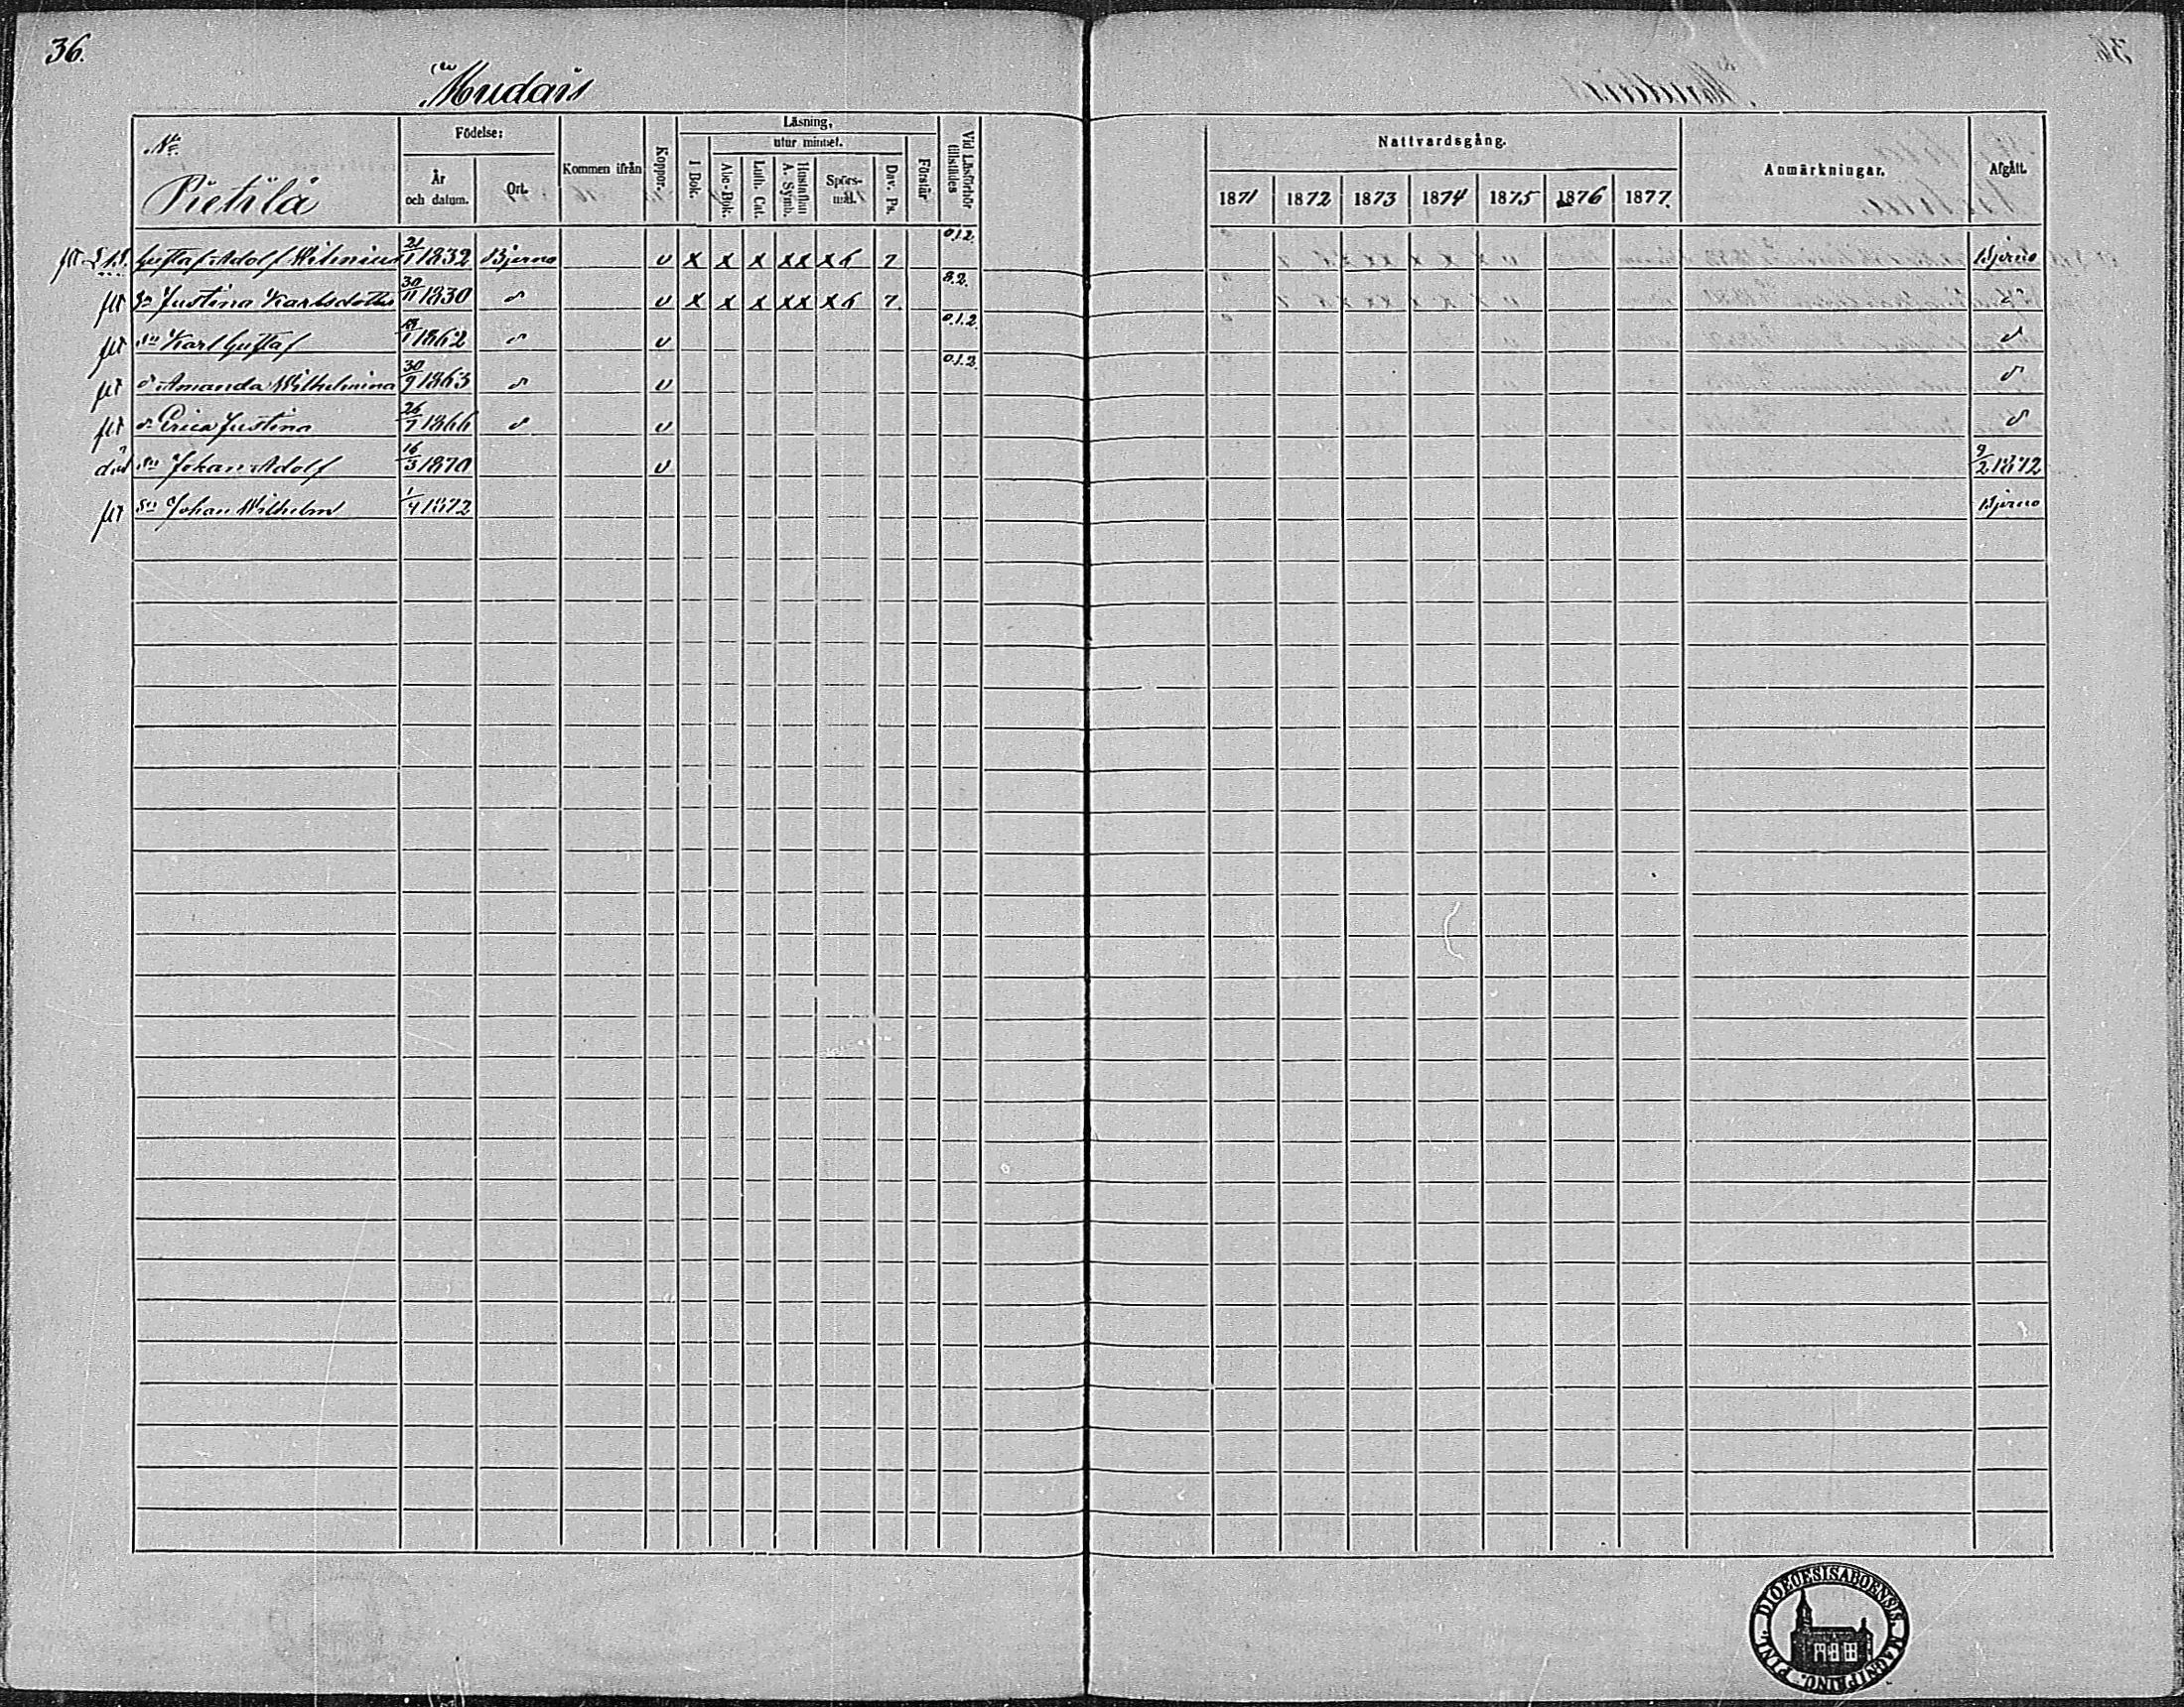 36.
Mudais
No.
Pietilä
Födelse:
År och datum.
Ort.
Kommen ifrån
Koppor.
Läsning,
I Bok.
utur minnet.
Abc-Bok.
Luth. Cat.
Hustaflan A. Symb.
Spörsmål.
Dav. Ps.
Förstår
Vid Läsförhör tillstädes
Nattvardsgång.
1871 1872 1873 1874 1875 1876 1877.
Anmärkningar.
Afgått.
flt Gustaf Adolf 21/1 1832 Bjerno v x x x xx x 6 7 0.1.2. Bjerno
flt Justina Karlsdotter 30/11 1830 d v x x x xx x 6 7. 8.2. d
flt Sn Karl Gustaf 1862 d v 0.1.2 d
flt d Amanda Wilhelmina 30/9 1863 d v 0.1.2. d
flt d Erica Justina 26/7 1866 d v d
död Sn Johan Adolf 16/3 1870 v 9/2 1872
flt Sn Johan Wilhelm 1/4 1872 Bjerno